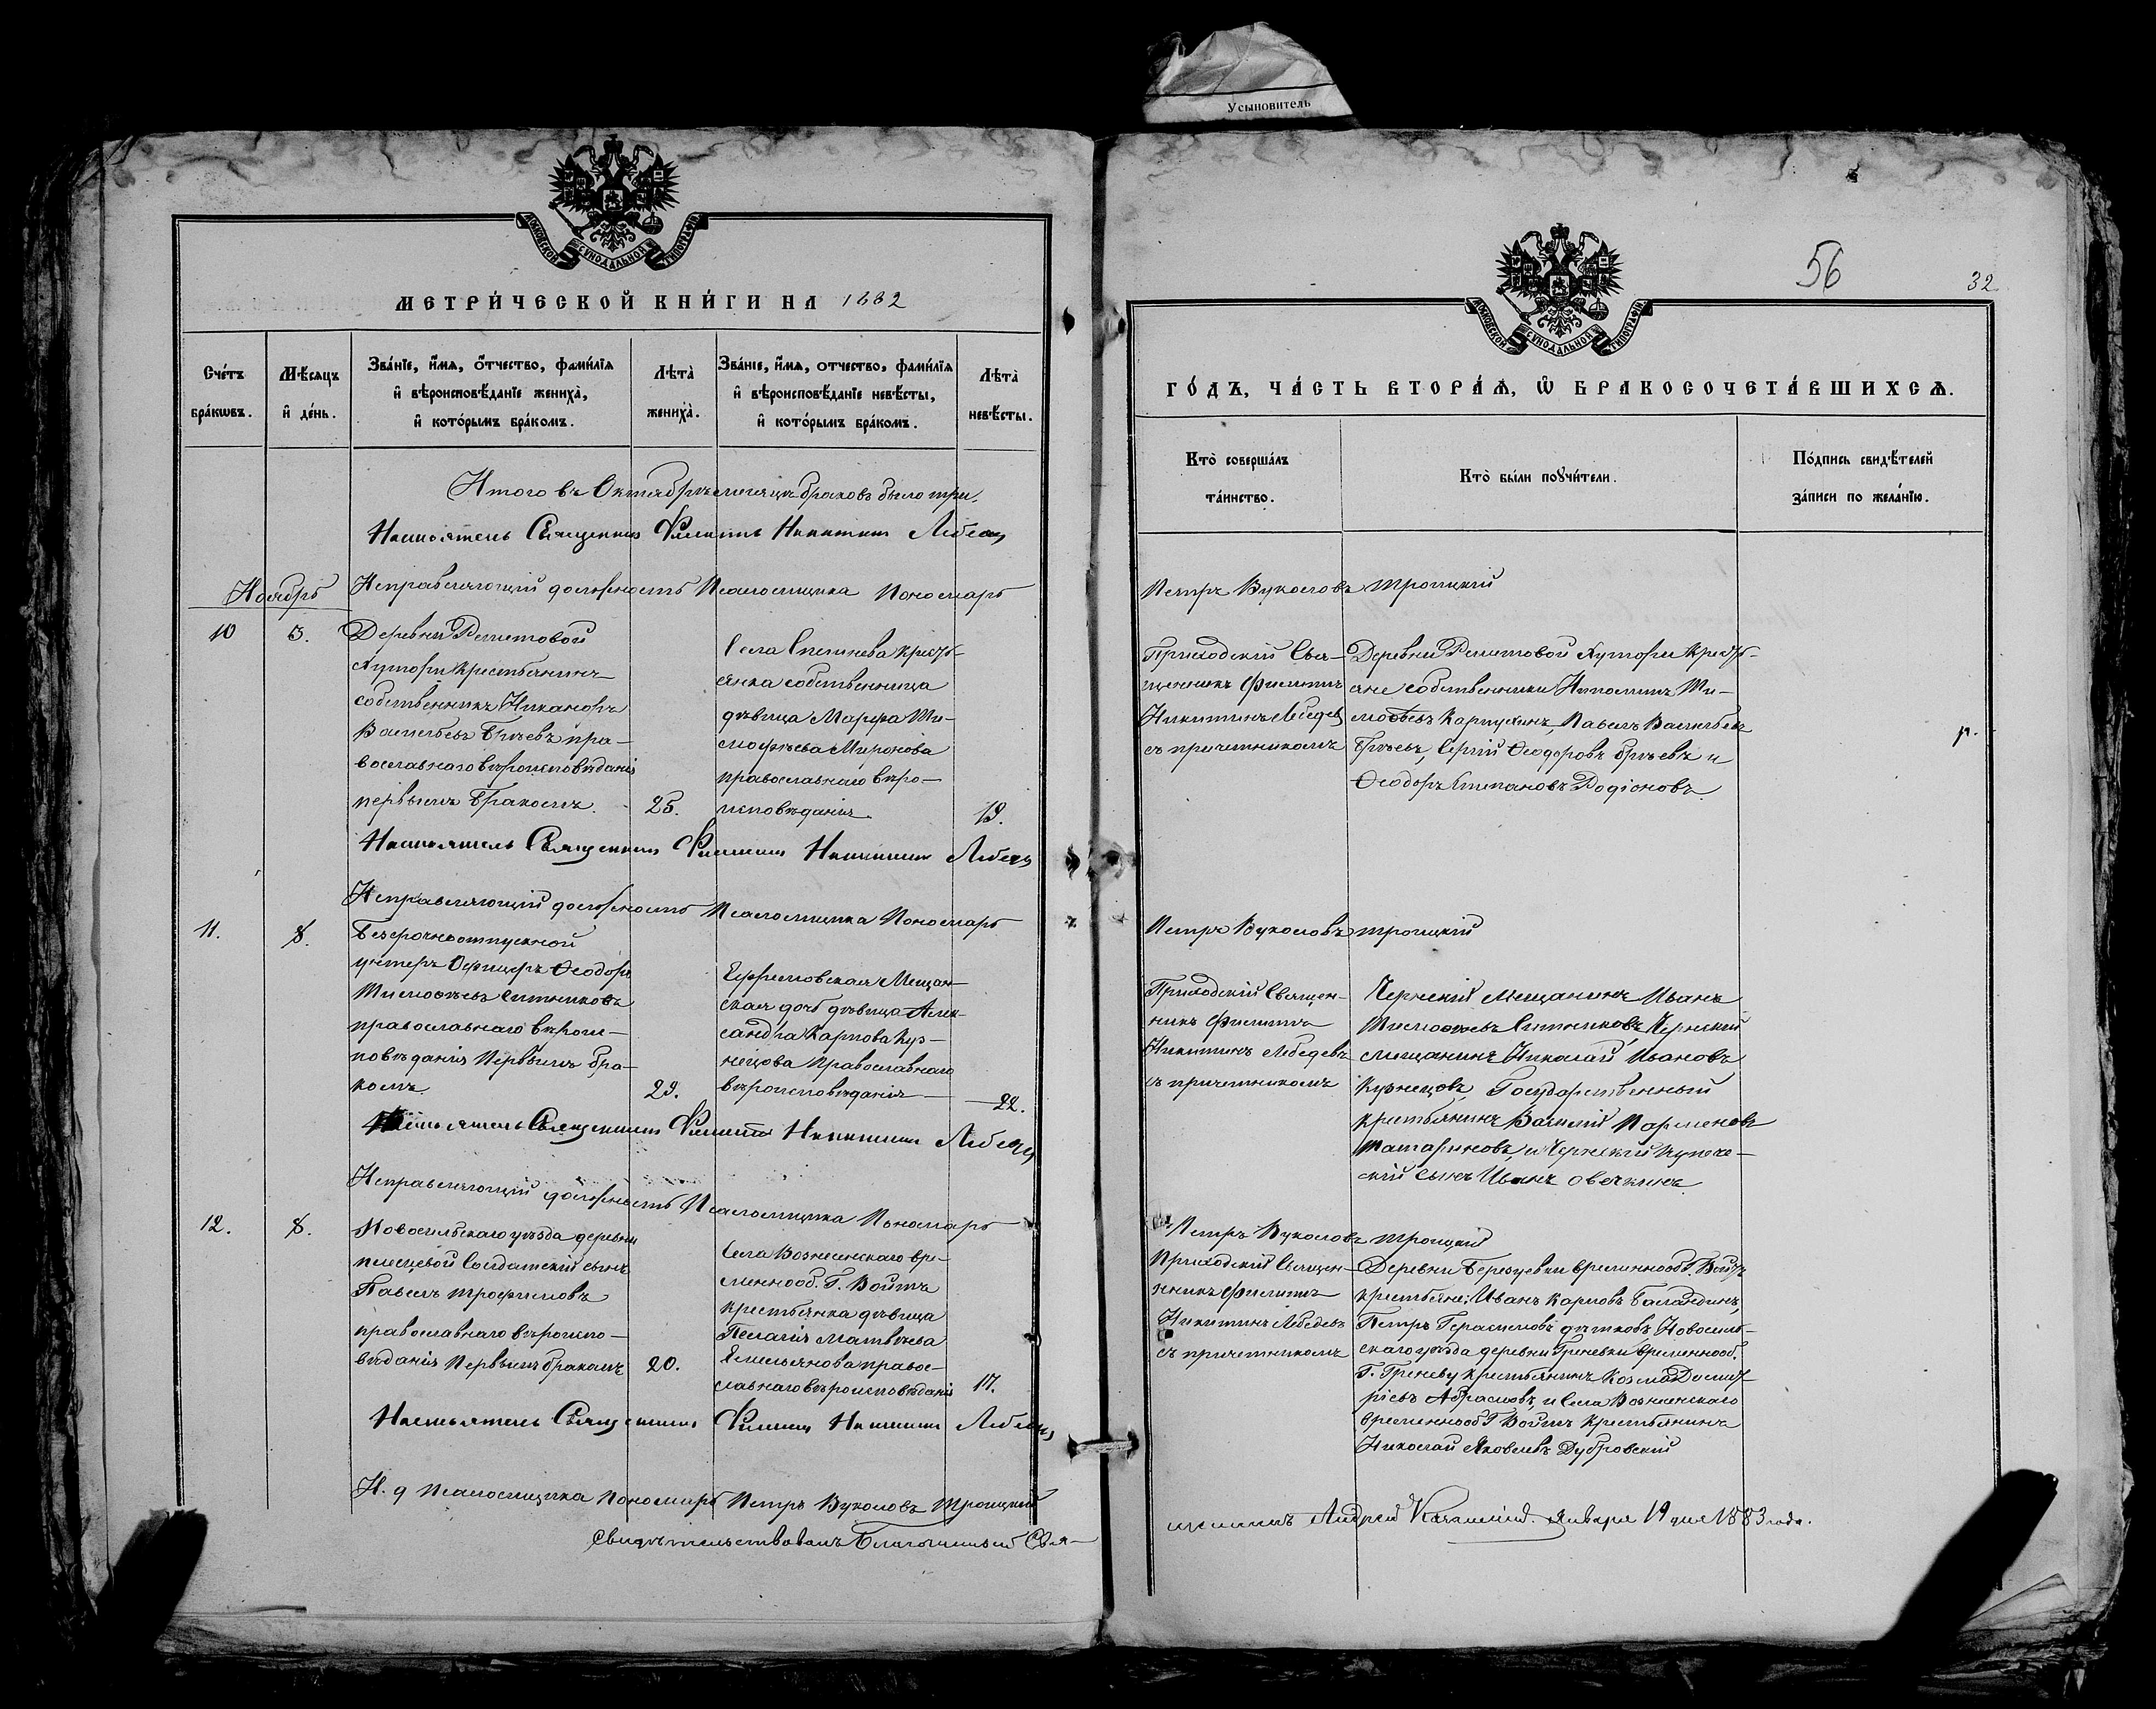 Усыновитель
МОСКОВСКОЙ СУНОДАЛЬНОЙ ТИПОГРАФІИ
МЕТРИ́ЧЕСКОЙ КНИ́ГИ НА 1882
Сче́тъ бра́кωвъ.
Мѣ́сяцъ и҆ де́нь.
Зва́нїе, и҆́мя, ѻ҆́тчество, фами́лїя и҆ вѣроисповѣ́данїе жениха̀, и҆ кото́рымъ бра́комъ.
Лѣта̀ жениха̀.
Зва́нїе, и҆́мя, отчество, фами́лїя и҆ вѣроисповѣ́данїе невѣ́сты, и҆ кото́рымъ бра́комъ.
Лѣта̀ невѣ́сты.
Итого въ Октябрѣ мѣсяцѣ браковъ было три.
Настоятель Священникъ Филиппъ Никитинъ Лебедевъ
Ноябрь
Исправляющій должность Псаломщика Пономарь
10
3.
Деревни Решетовой
Хутора Крестьянинъ
собственникъ Никаноръ
Васильевъ Гржевъ пра-
вославнаго вѣроисповѣданія
первымъ бракомъ.
25.
Села Спешнева Кресть-
янка собственница
дѣвица Марфа Ти-
мофѣева Миронова
православнаго вѣро-
исповѣданія.
19.
Настоятель Священникъ Филиппъ Никитинъ Лебедевъ
Исправляющій должность Псаломщика Пономарь
11.
8.
Безсрочноотпускной
унтеръ Офицеръ Ѳеодоръ
Тимоѳѣевъ Ситниковъ
православнаго вѣроис-
повѣданія Первымъ бра-
комъ.
29.
Ефремовская Мещан-
ская дочь дѣвица Алек-
сандра Карпова Куз-
нецова Православнаго
вѣроисповѣданія
22.
Настоятель Священникъ Филиппъ Никитинъ Лебедевъ
Исправляющій должность Псаломщика Пономарь
12.
8.
Новосильскаго уѣзда деревни
Солдатскій сынъ
Павелъ Трофимовъ
православнаго вѣроиспо-
вѣданія Первымъ бракомъ
20.
Села Вознесенскаго вре-
меннооб. Г. Войтъ
крестьянка дѣвица
Пелагія Матвѣева
Емельянова правос-
лавнаго вѣроисповѣданія
17.
Настоятель Священникъ Филиппъ Никитинъ Лебедевъ
И. д Псаломщика Пономарь Петръ Вуколовъ Троицкій
Свидѣтельствовалъ Благочинный Свя-
56
32
МОСКОВСКОЙ СУНОДАЛЬНОЙ ТИПОГРАФІИ
ГО́ДЪ, ЧА́СТЬ ВТОРА́Ѧ, Ѽ БРАКОСОЧЕТА́ВШИХСѦ.
Кто̀ соверша́лъ та́инство.
Кто̀ бы́ли поꙋчи́тели.
По́дпись свидѣ́телей за́писи по жела́нїю.
Петръ Вуколовъ Троицкій
Приходскій Свя-
щенникъ Филиппъ
Никитинъ Лебедевъ
съ причетникомъ
Деревни Решетовой Хутора Кресть-
яне собственники Ти-
моѳѣевъ Карпухинъ, Павелъ Васильевъ
Гржевъ, Сергій Ѳеодоровъ Гржевъ и
Ѳеодоръ Степановъ Родіоновъ.
Петръ Вуколовъ Троицкій
Приходскій Священ-
никъ Филиппъ
Никитинъ Лебедевъ
съ причетникомъ
Чернскій Мещанинъ Иванъ
Тимоѳѣевъ Ситниковъ, Чернскій
мещанинъ Николай Ивановъ
Кузнецовъ, Государственный
крестьянинъ Василій Парменовъ
Татариновъ, и Чернскій Купече-
скій сынъ Иванъ Овечкинъ.
Петръ Вуколовъ Троицкій
Приходскій Священ-
никъ Филиппъ
Никитинъ Лебедевъ
съ причетникомъ
Деревни Березовки временнооб Г. Войтъ
крестьяне: Иванъ Карповъ Баландинъ,
Петръ Герасимовъ Новосиль-
скаго уѣзда деревни временнооб.
Г. крестьянинъ Козма Димит-
ріевъ Абрамовъ, и Села Вознесенскаго
временнооб Г Войтъ Крестьянинъ
Николай Яковлевъ Дубровскій
щенникъ Андрей Января 19 дня 1883 года.